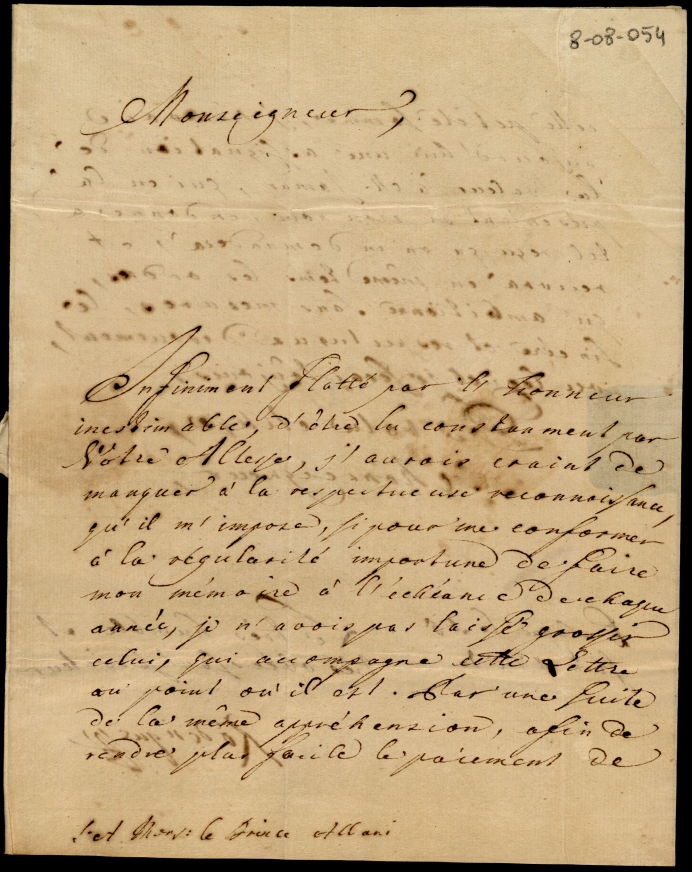 8-08-054
Monseigneur,
Infiniment flatté par l'honneur
inestimable, d'être lu constamment par
Votre Altesse, j'aurois craint de
manquer à la respectueuse reconnoissance,
qu'il m'impose, si pour me conformer
à la régularité importune de faire
mon mémoire à l'échéance de chaque
année, je n'avois pas laissé grossir
celui, qui accompagne cette Lettre
au point où il est. Par une suite
de la même appréhension, afin de
rendre plus facile le paiement de
le Prince Albani